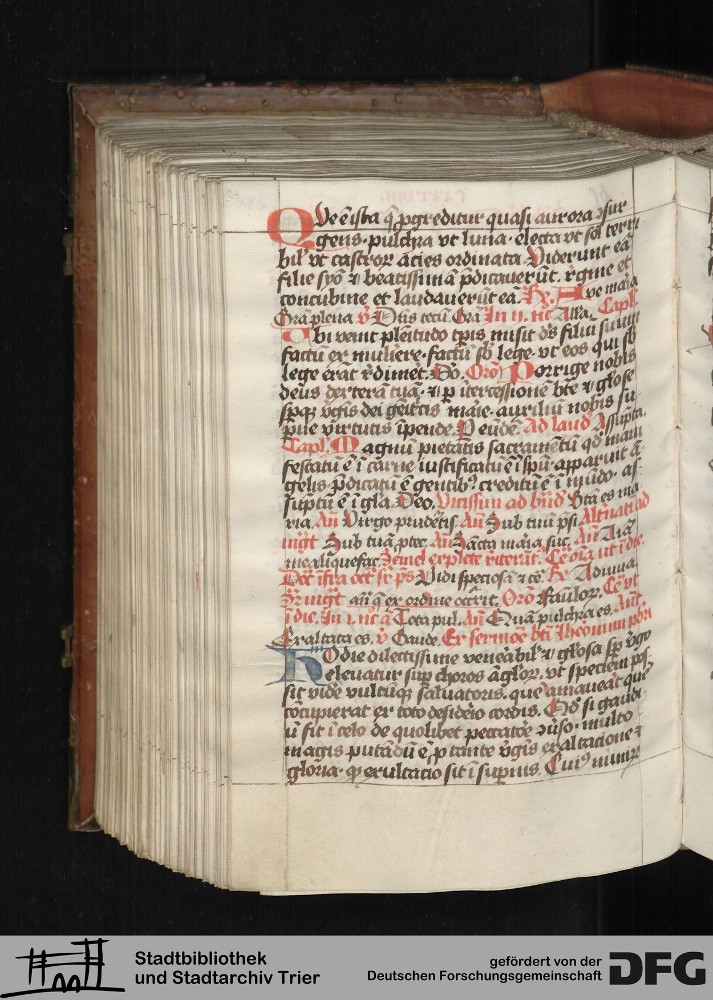 Que e ista q̄ ꝓgreditur quasi aurora ꝯsur
gens· pulchra vt luna· electa vt sol terri
bil' vt castroꝝ acies ordinata Viderunt eā
filie syō ⁊ beatissimā p̄dicaverūt. rgine et
concubine et laudaverūt eā. Rx. Ave maria
Gra plena. v̄ Dn̄s tecū. Gra In ij. nc̄ Alla. Capl̄.
Ubi venit plēitudo tp̄is misit d's filiū suum
factū ex muliere· factū sb̄ lege· vt eos qui sb̄
lege erāt rdimet. Dō. Orō Porrige nobis
deus dexterā tuā· ⁊ p īt'cessionē bt̄e ⁊ glose
sꝑqꝫ v̄gis dei geītcis marie· auxiliū nobis su
ꝑne virtutis īpende. P eundē. Ad laud Assūpta.
Capl̄. Magnū pietatis sacramētū qd' mani
festatū ē ī carne iustificatū ē ī spū· apparuit ā
gelis p̄dicatū ē gentibꝫ creditū ē ī mūdo· as
suptū ē ī gla. Deo. Vicissim ad bn̄d Bta es ma
ria. An̄ Virgo prudētis An̄ Sub tuū p̄si Altn̄ati ad
mgt̄ Sub tuā ptec. An̄ Sācta maria suc. An̄ Aīa
mea liquefac. Semel explete riterūt. Cet̄a ut ī die.
Vidi speciosā ⁊ cē. Rx Adiuua
an̄ q̄ ex ordine occ̄rit. Orō Famloꝝ. Cet̄ vt
ī die. In ī. nc̄ ā Tota pul. An̄ Quā pulchra es. Ant̄
Exaltata es. v̄ Gaude. Ex sermōe bt̄i Iheronimi pb̄ri
Hodie dilectissime venerabil' ⁊ gl'osa sꝑ v̄go
elevatur suꝑ choros āgloꝝ. vt speciem poss
sit vidē vultūqꝫ saluatoris. que amaveāt que
cōcupierat ex toto desiderio cordis. Qd' si gaudi
ū fit ī celo de quolibet peccatōe ꝯuso· multo
magis putādū ē ꝓ tante v̄gis exaltatione ⁊
gloria· ꝙ exultacio sit ī supnis. Cuiꝰ nimiꝝ
Stadtbibliothek
und Stadtarchiv Trier
gefördert von der
Deutschen Forschungsgemeinschaft
DFG